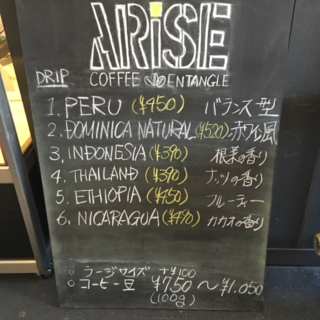 ARiSE
COFFEE ENTANGLE
DRIP
1. PERU (¥450) バランス型
2. DOMINICA NATURAL (¥520) ホワイン風
3. INDONESIA (¥390) 根菜の香り
4. THAILAND (¥390) ナッツの香り
5. ETHIOPIA (¥450) フルーティー
6. NICARAGUA (¥490) カカオの香り
○ ラージサイズ +¥100
○ コーヒー豆 ¥750〜¥1.050
(100g)